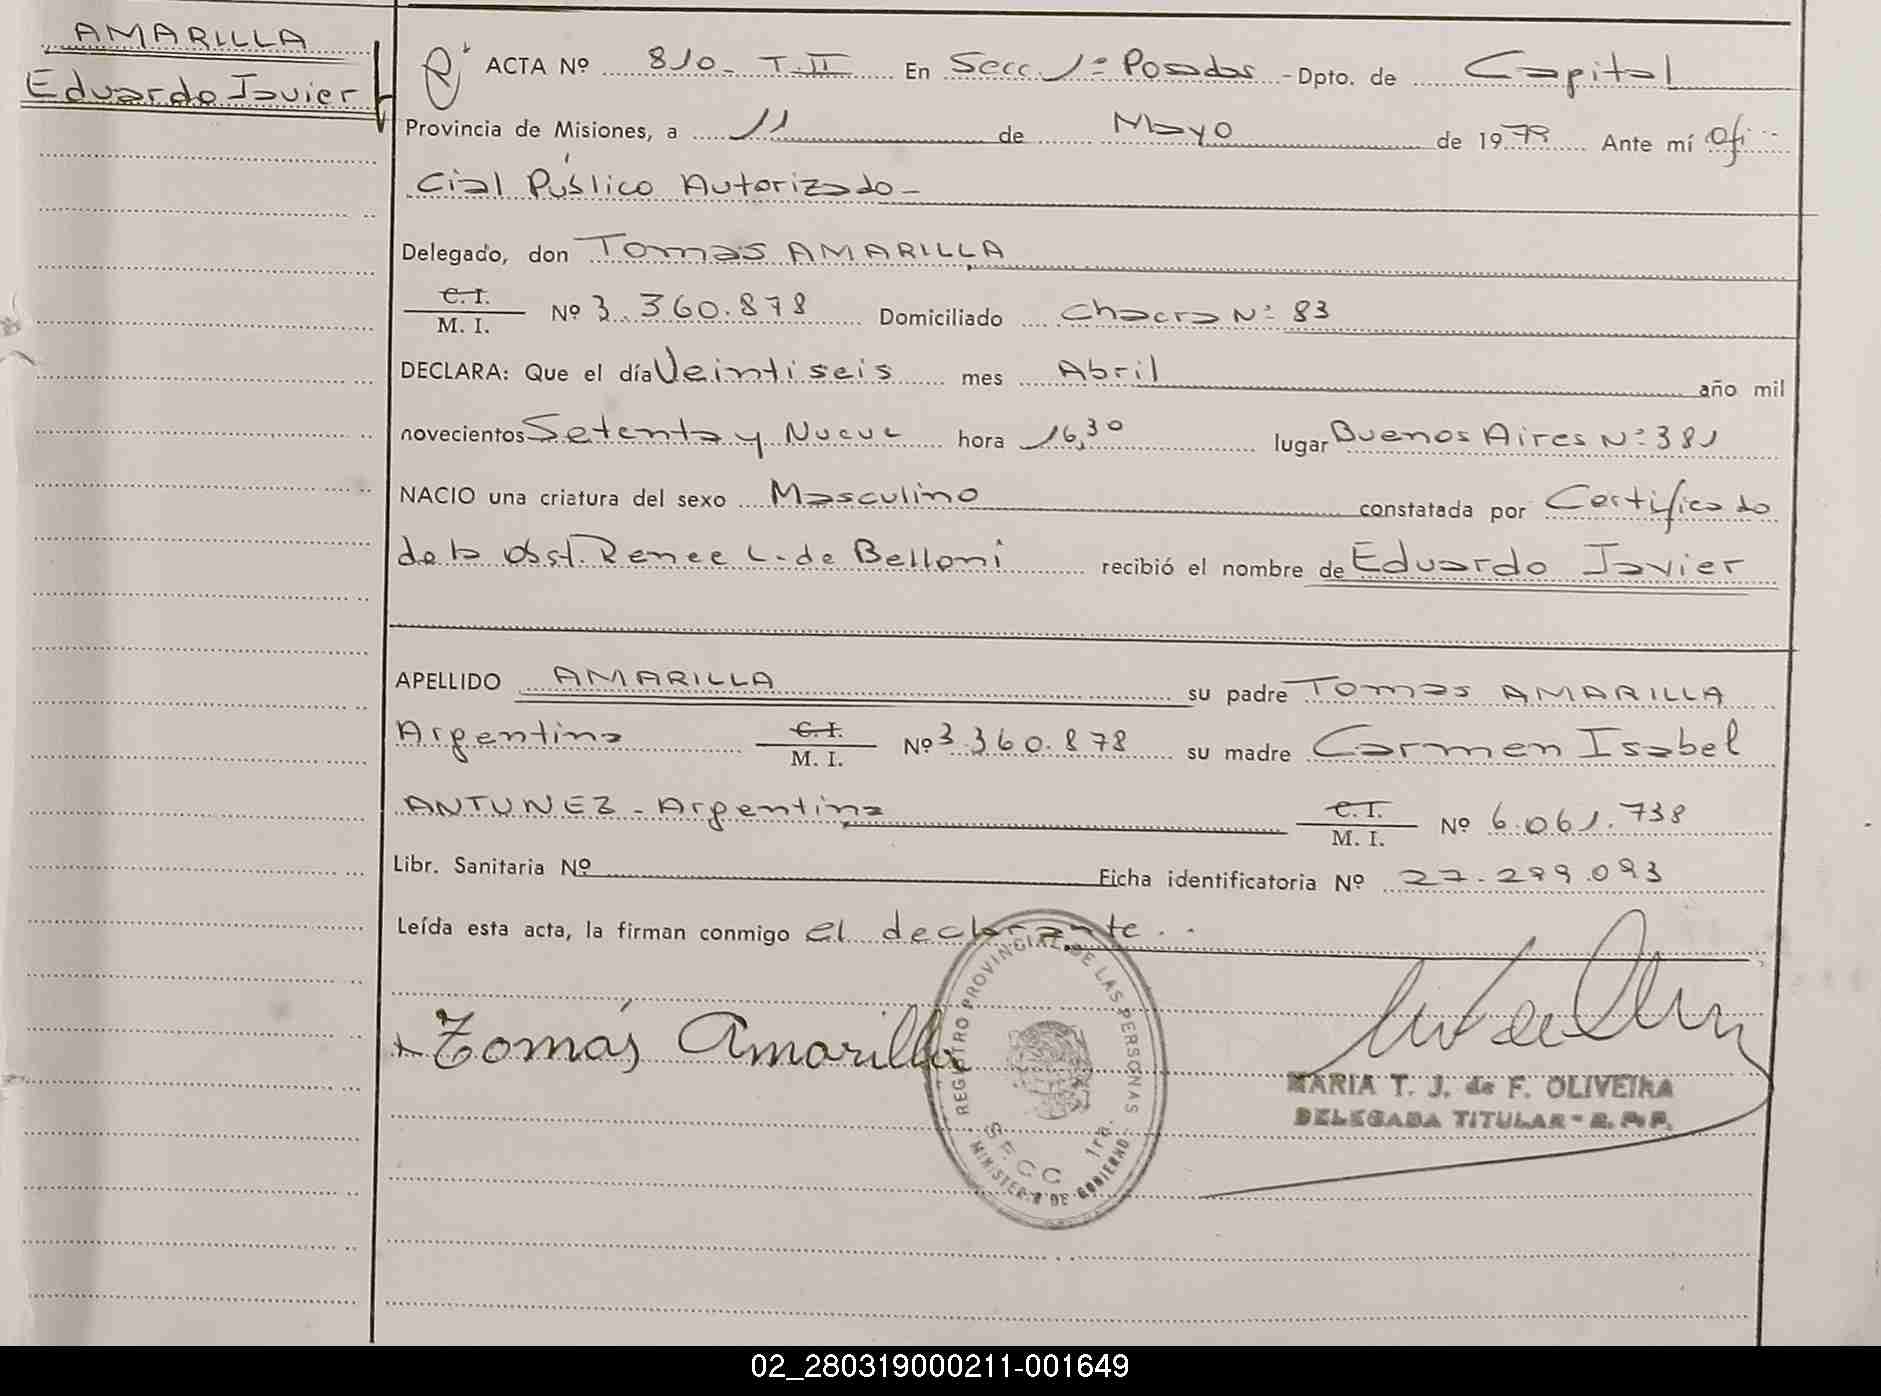 AMARILLA
Eduardo Javier
ACTA Nº 810- T.II En Secc 1ª Posadas - Dpto. de Capital
Provincia de Misiones, a 11 de Mayo de 1979 Ante mí Ofi-
cial Público Autorizado-
Delegado, don Tomas AMARILLA
C.I.
M. I. Nº 3.360.878 Domiciliado Chacra Nº 83
DECLARA: Que el día Veintiseis mes Abril año mil
novecientos Setenta y Nueve hora 16,30 lugar Buenos Aires Nº 381
NACIO una criatura del sexo Masculino constatada por Certificado
de la Obst. Renee L. de Belloni recibió el nombre de Eduardo Javier
APELLIDO AMARILLA su padre Tomas AMARILLA
Argentina C.I.
M. I. Nº 3.360.878 su madre Carmen Isabel
ANTUNEZ - Argentina C.I.
M. I. Nº 6.061.738
Libr. Sanitaria Nº Ficha identificatoria Nº 27.299.093
Leída esta acta, la firman conmigo el declarante..
Tomás Amarilla
REGISTRO PROVINCIAL DE LAS PERSONAS
SECC 1ra.
MINISTERIO DE GOBIERNO
MARIA T. J. de F. OLIVEIRA
DELEGADA TITULAR - R. P. P.
02_280319000211-001649